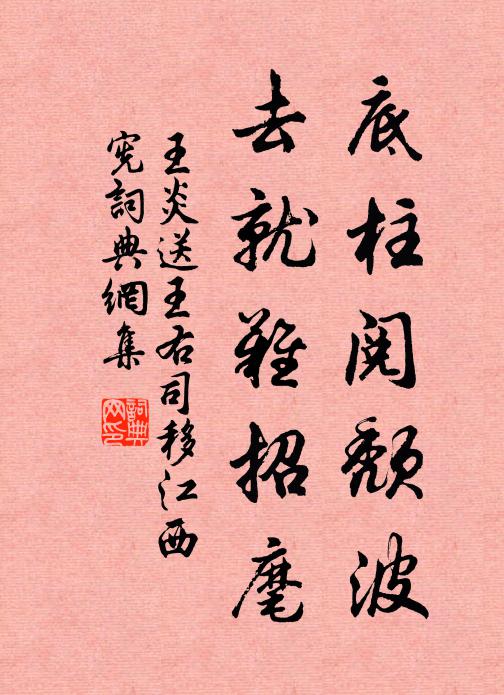 底柱閱頹波
去就難招麾
王炎送王右司移江西
宪詞典網集
詞典
网印